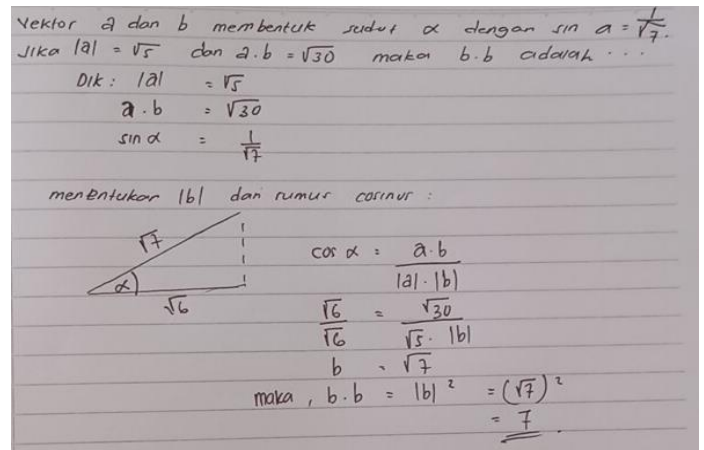 Vektor a dan b membentuk sudut α dengan sin a = 1/√7.
Jika |a| = √5 dan a.b = √30 maka b.b adalah ...
Dik : |a| = √5
a . b = √30
sin α = 1/√7
menentukan |b| dari rumus cosinus :
√7
α
√6
cos α = a.b / |a|.|b|
√6/√6 = √30 / √5 . |b|
b = √7
maka, b.b = |b|² = (√7)²
= 7.